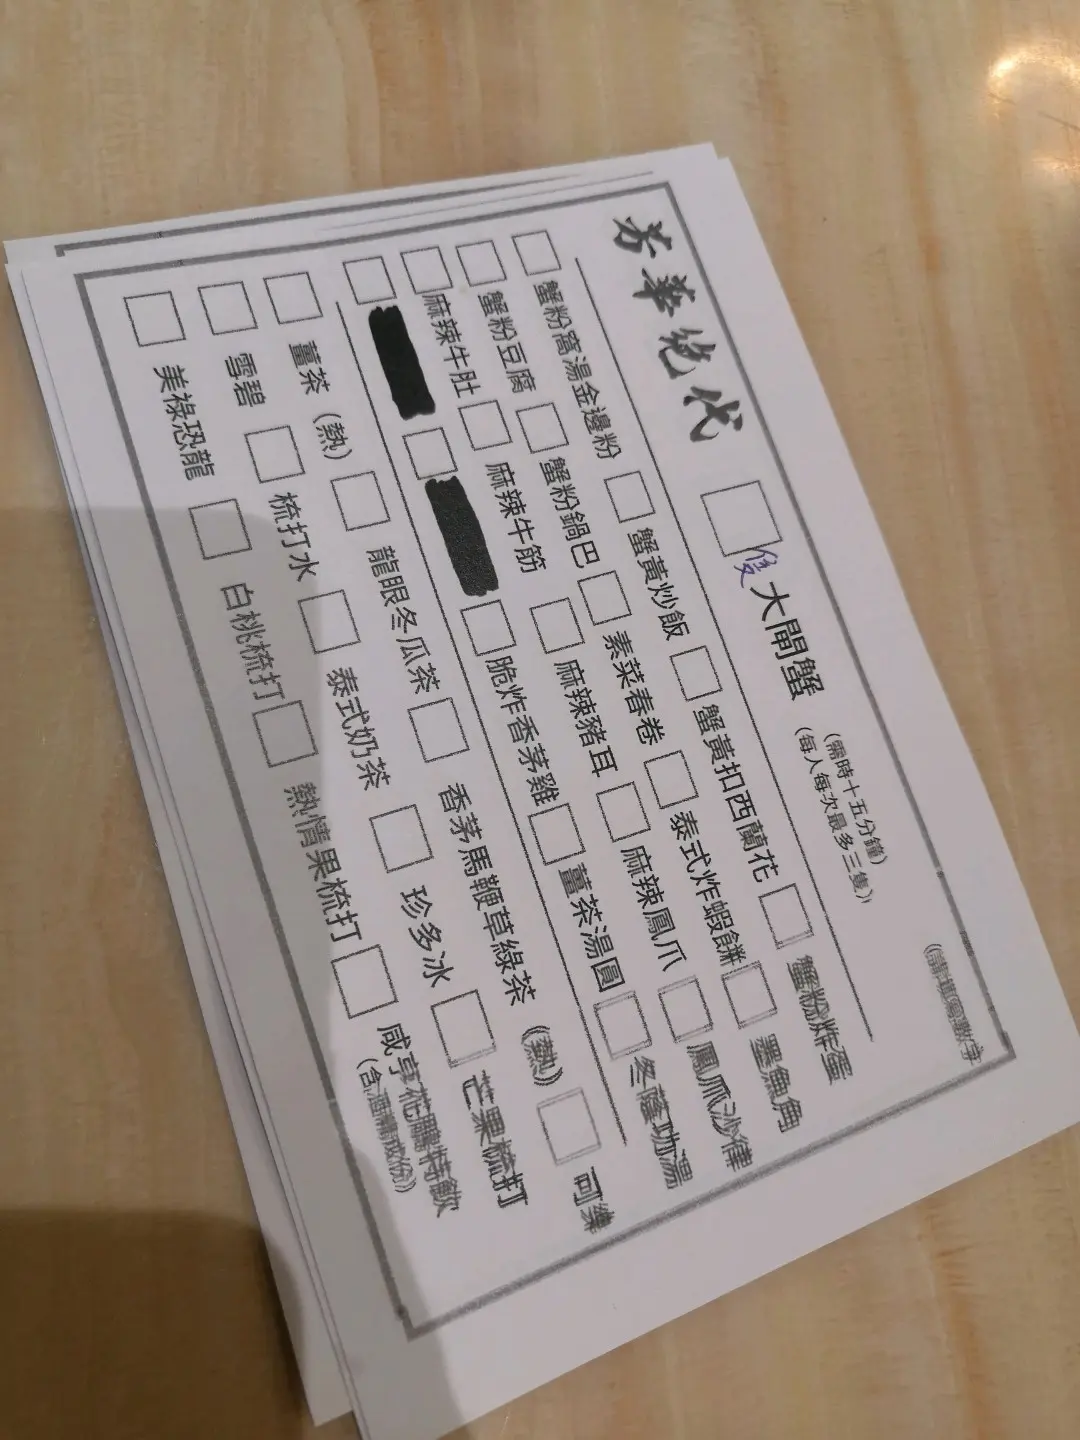 芳華絶代
□ 後大閘蟹 (需時十五分鐘)
(每人每次最多三隻)
(請填寫數字)
□ 蟹粉窩湯金邊粉 □ 蟹黃炒飯 □ 蟹黃扣西蘭花 □ 蟹粉炸蛋
□ 蟹粉豆腐 □ 蟹粉鍋巴 □ 素菜春卷 □ 泰式炸蝦餅 □ 墨魚角
□ 麻辣牛肚 □ 麻辣牛筋 □ 麻辣豬耳 □ 麻辣鳳爪 □ 鳳爪沙律
□ □ □ 脆炸香茅雞 □ 薑茶湯圓 □ 冬蔭功湯
□ 薑茶 (熱) □ 龍眼冬瓜茶 □ 香茅馬鞭草綠茶 (熱) □ 可樂
□ 雪碧 □ 梳打水 □ 泰式奶茶 □ 珍多冰 □ 芒果梳打
□ 美祿恐龍 □ 白桃梳打 □ 熱情果梳打 □ 咸亨花雕特飲
(含酒精成份)